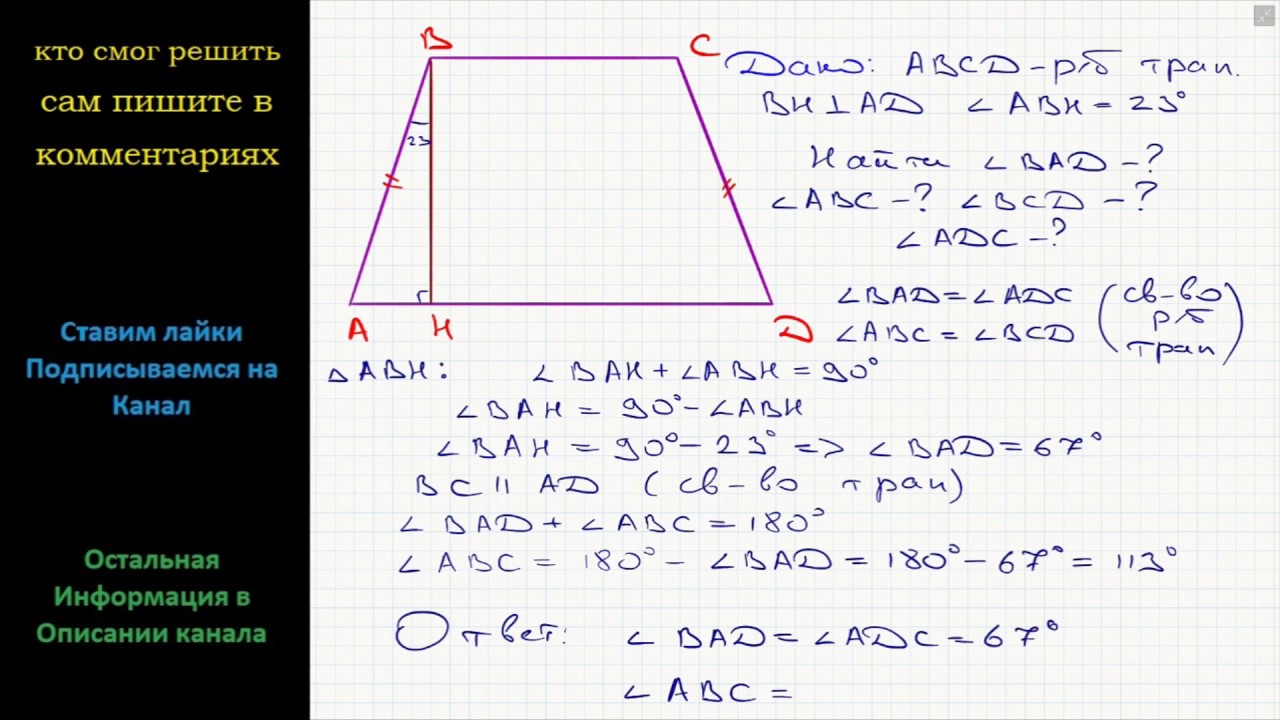 кто смог решить
сам пишите в
комментариях
Ставим лайки
Подписываемся на
Канал
Остальная
Информация в
Описании канала
B
C
23
A
H
D
Дано: ABCD – р/б трап.
BH ⊥ AD ∠ ABH = 23°
Найти ∠ BAD – ?
∠ ABC – ? ∠ BCD – ?
∠ ADC – ?
∠ BAD = ∠ ADC (св-во
∠ ABC = ∠ BCD р/б
трап)
△ ABH: ∠ BAH + ∠ ABH = 90°
∠ BAH = 90° – ∠ ABH
∠ BAH = 90° – 23° => ∠ BAD = 67°
BC || AD (св-во трап)
∠ BAD + ∠ ABC = 180°
∠ ABC = 180° – ∠ BAD = 180° – 67° = 113°
Ответ: ∠ BAD = ∠ ADC = 67°
∠ ABC =